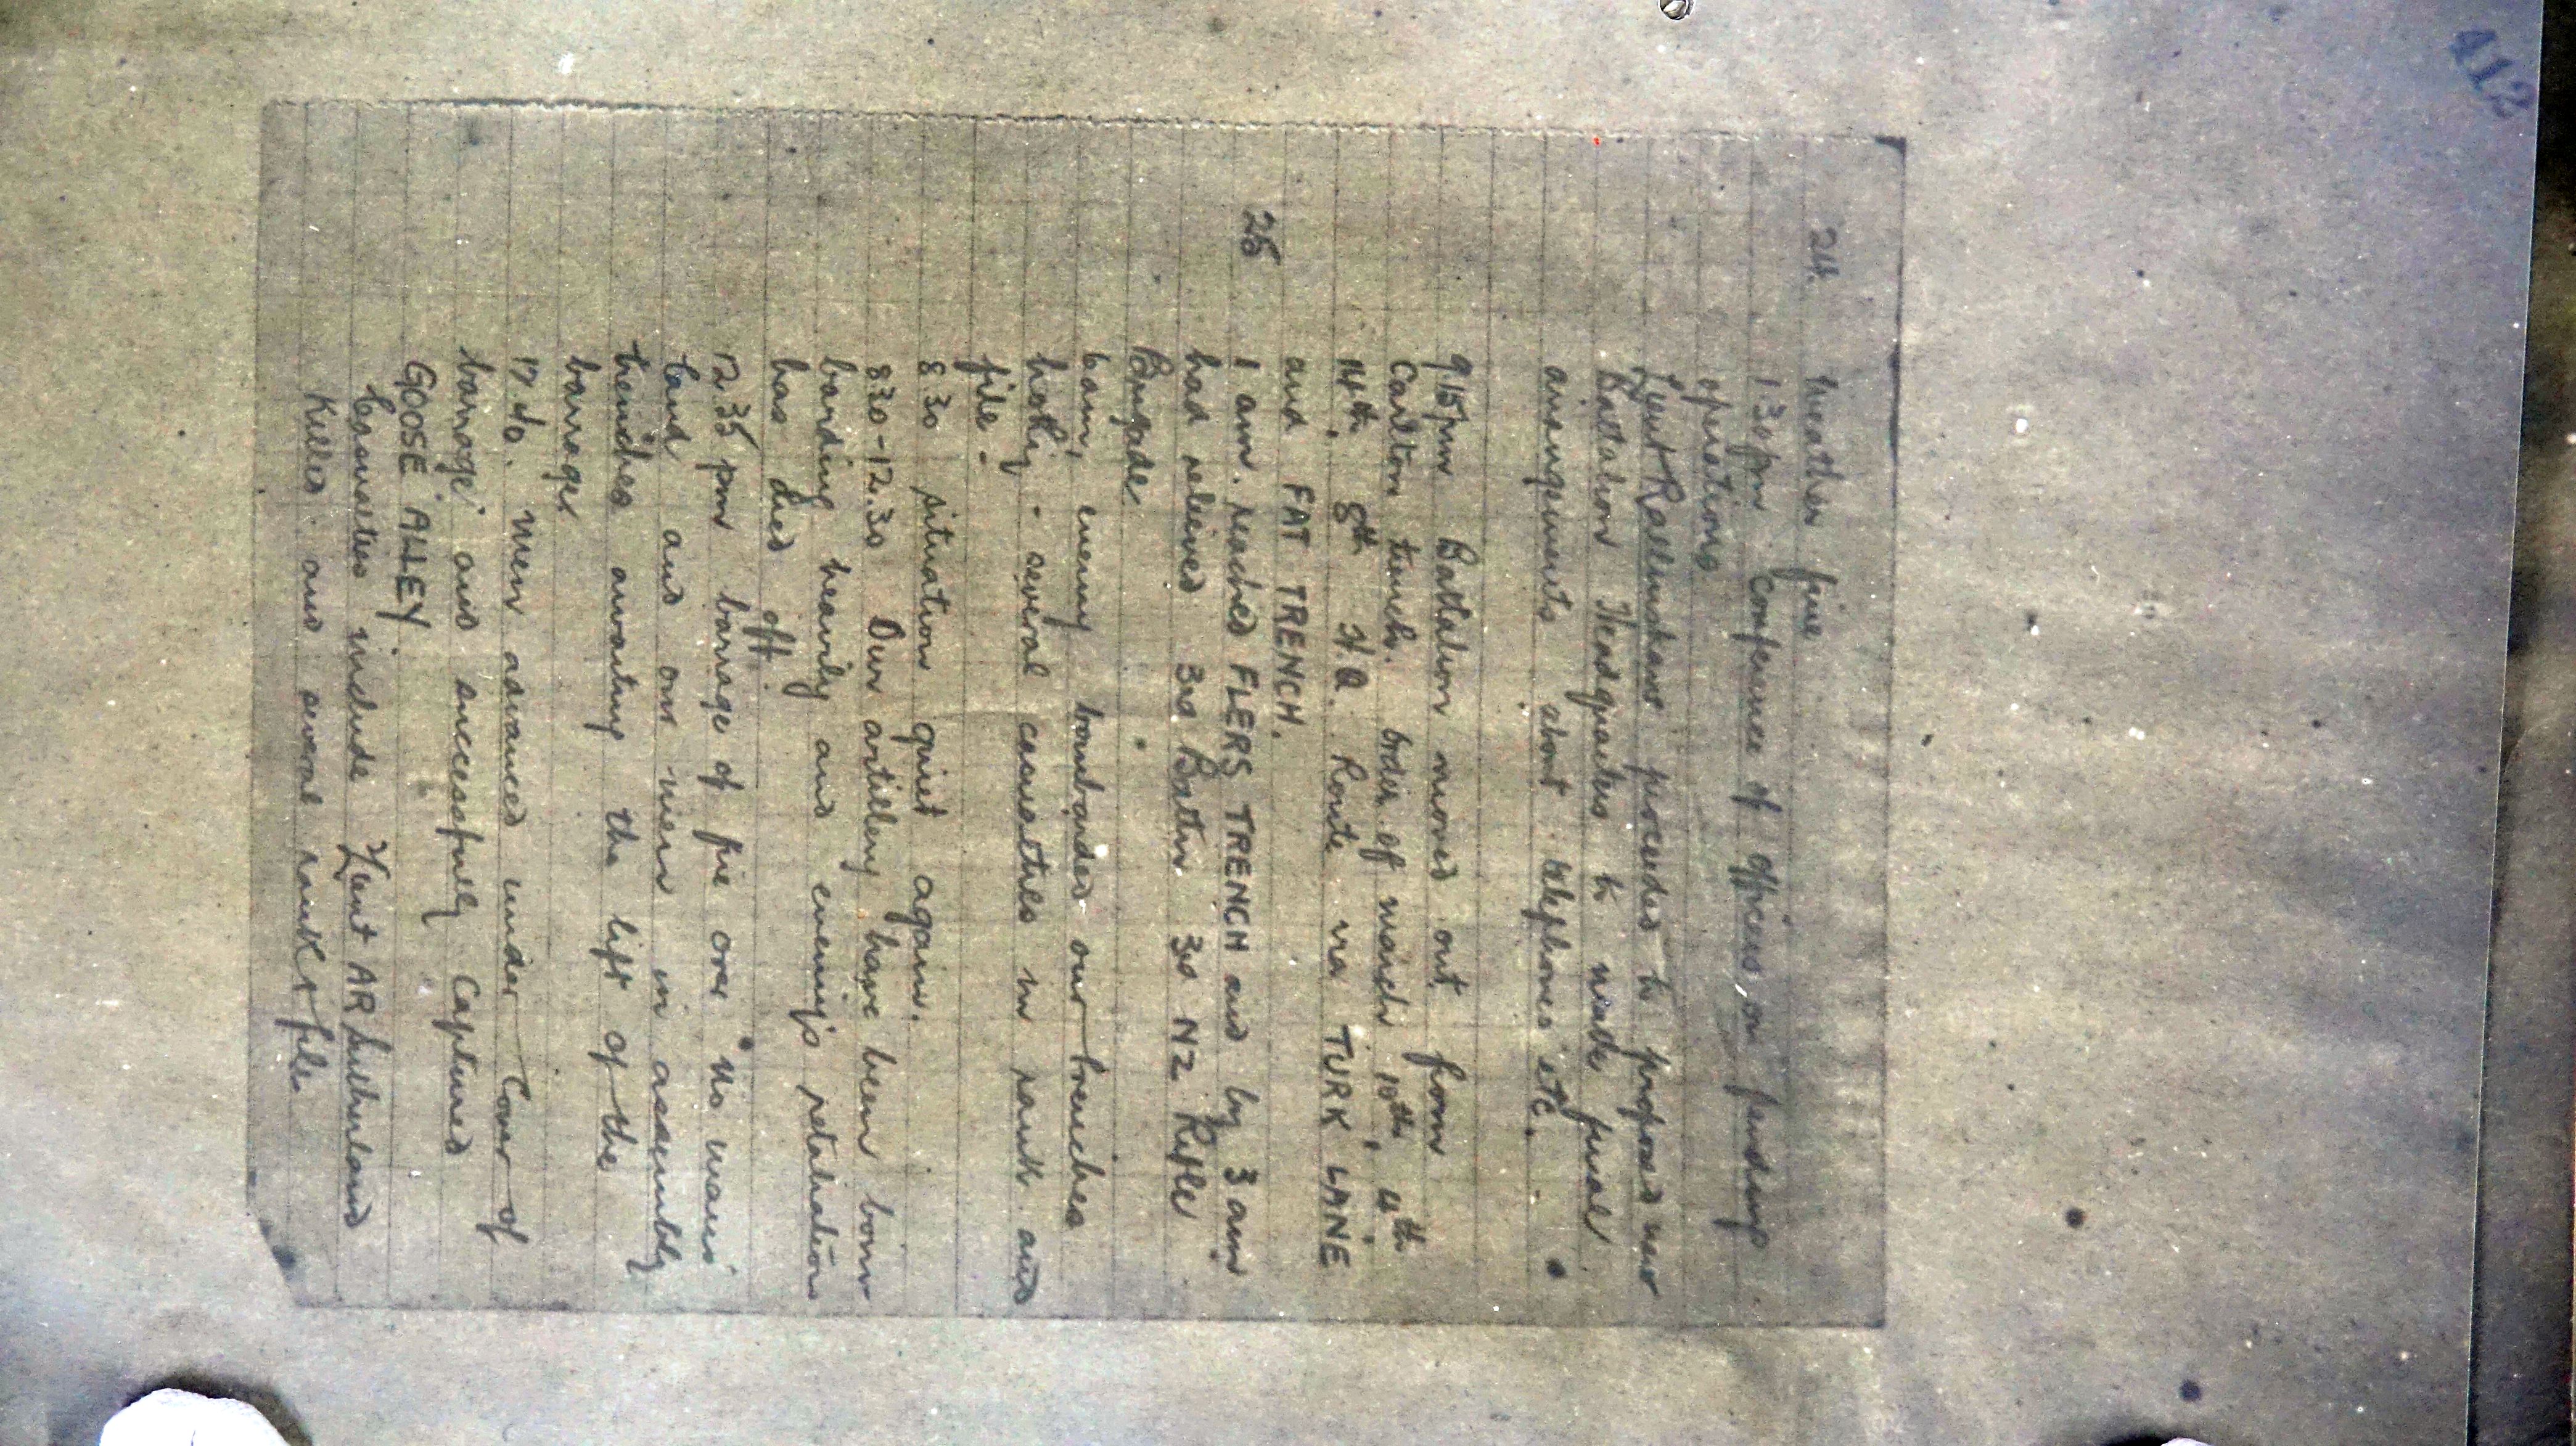 412
24 Weather fine
1 30pm Conference of officers on pending
operations
Lieut Rallinshaw proceeded to proposed new
Battalion Headquarters to make final
arrangements about telephones etc.
9 15pm Battalion moved out from
Carlton trench. Order of march 10th, 4th,
14th, 8th H.Q. Route via TURK LANE
and FAT TRENCH.
25 1 am. reached FLERS TRENCH and by 3 am
had relieved 3rd Battn. 3rd NZ Rifle
Brigade.
6am, enemy bombarded our trenches
hotly - several casualties in rank and
file.
8 30 situation quiet again.
8 30 - 12.30 Our artillery have been bom
barding heavily and enemy's retaliation
has died off.
12.35 pm barrage of fire over "No mans"
land and our men in assembly
trenches awaiting the lift of the
barrage
17.40. Men advanced under cover of
barrage and successfully captured
GOOSE ALLEY
Casualties include Lieut A R Sutherland
Killed and several rank & file